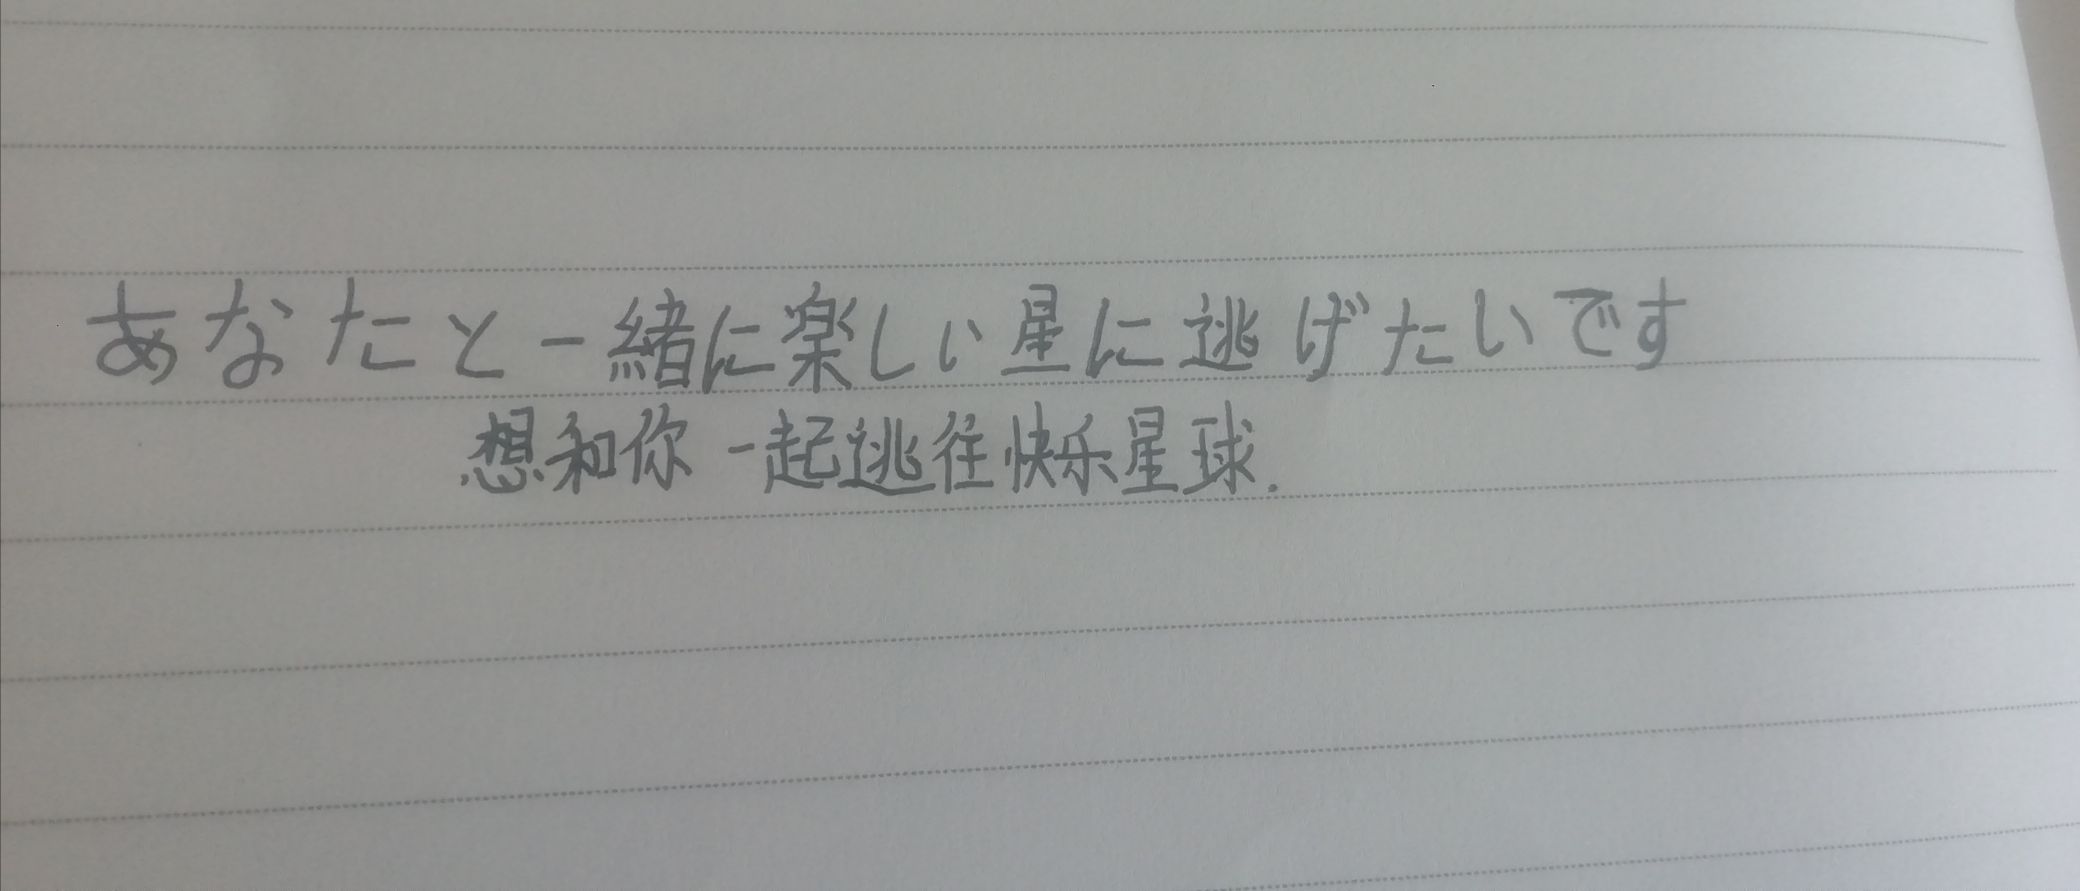 あなたと一緒に楽しい星に逃げたいです
想和你一起逃往快乐星球.